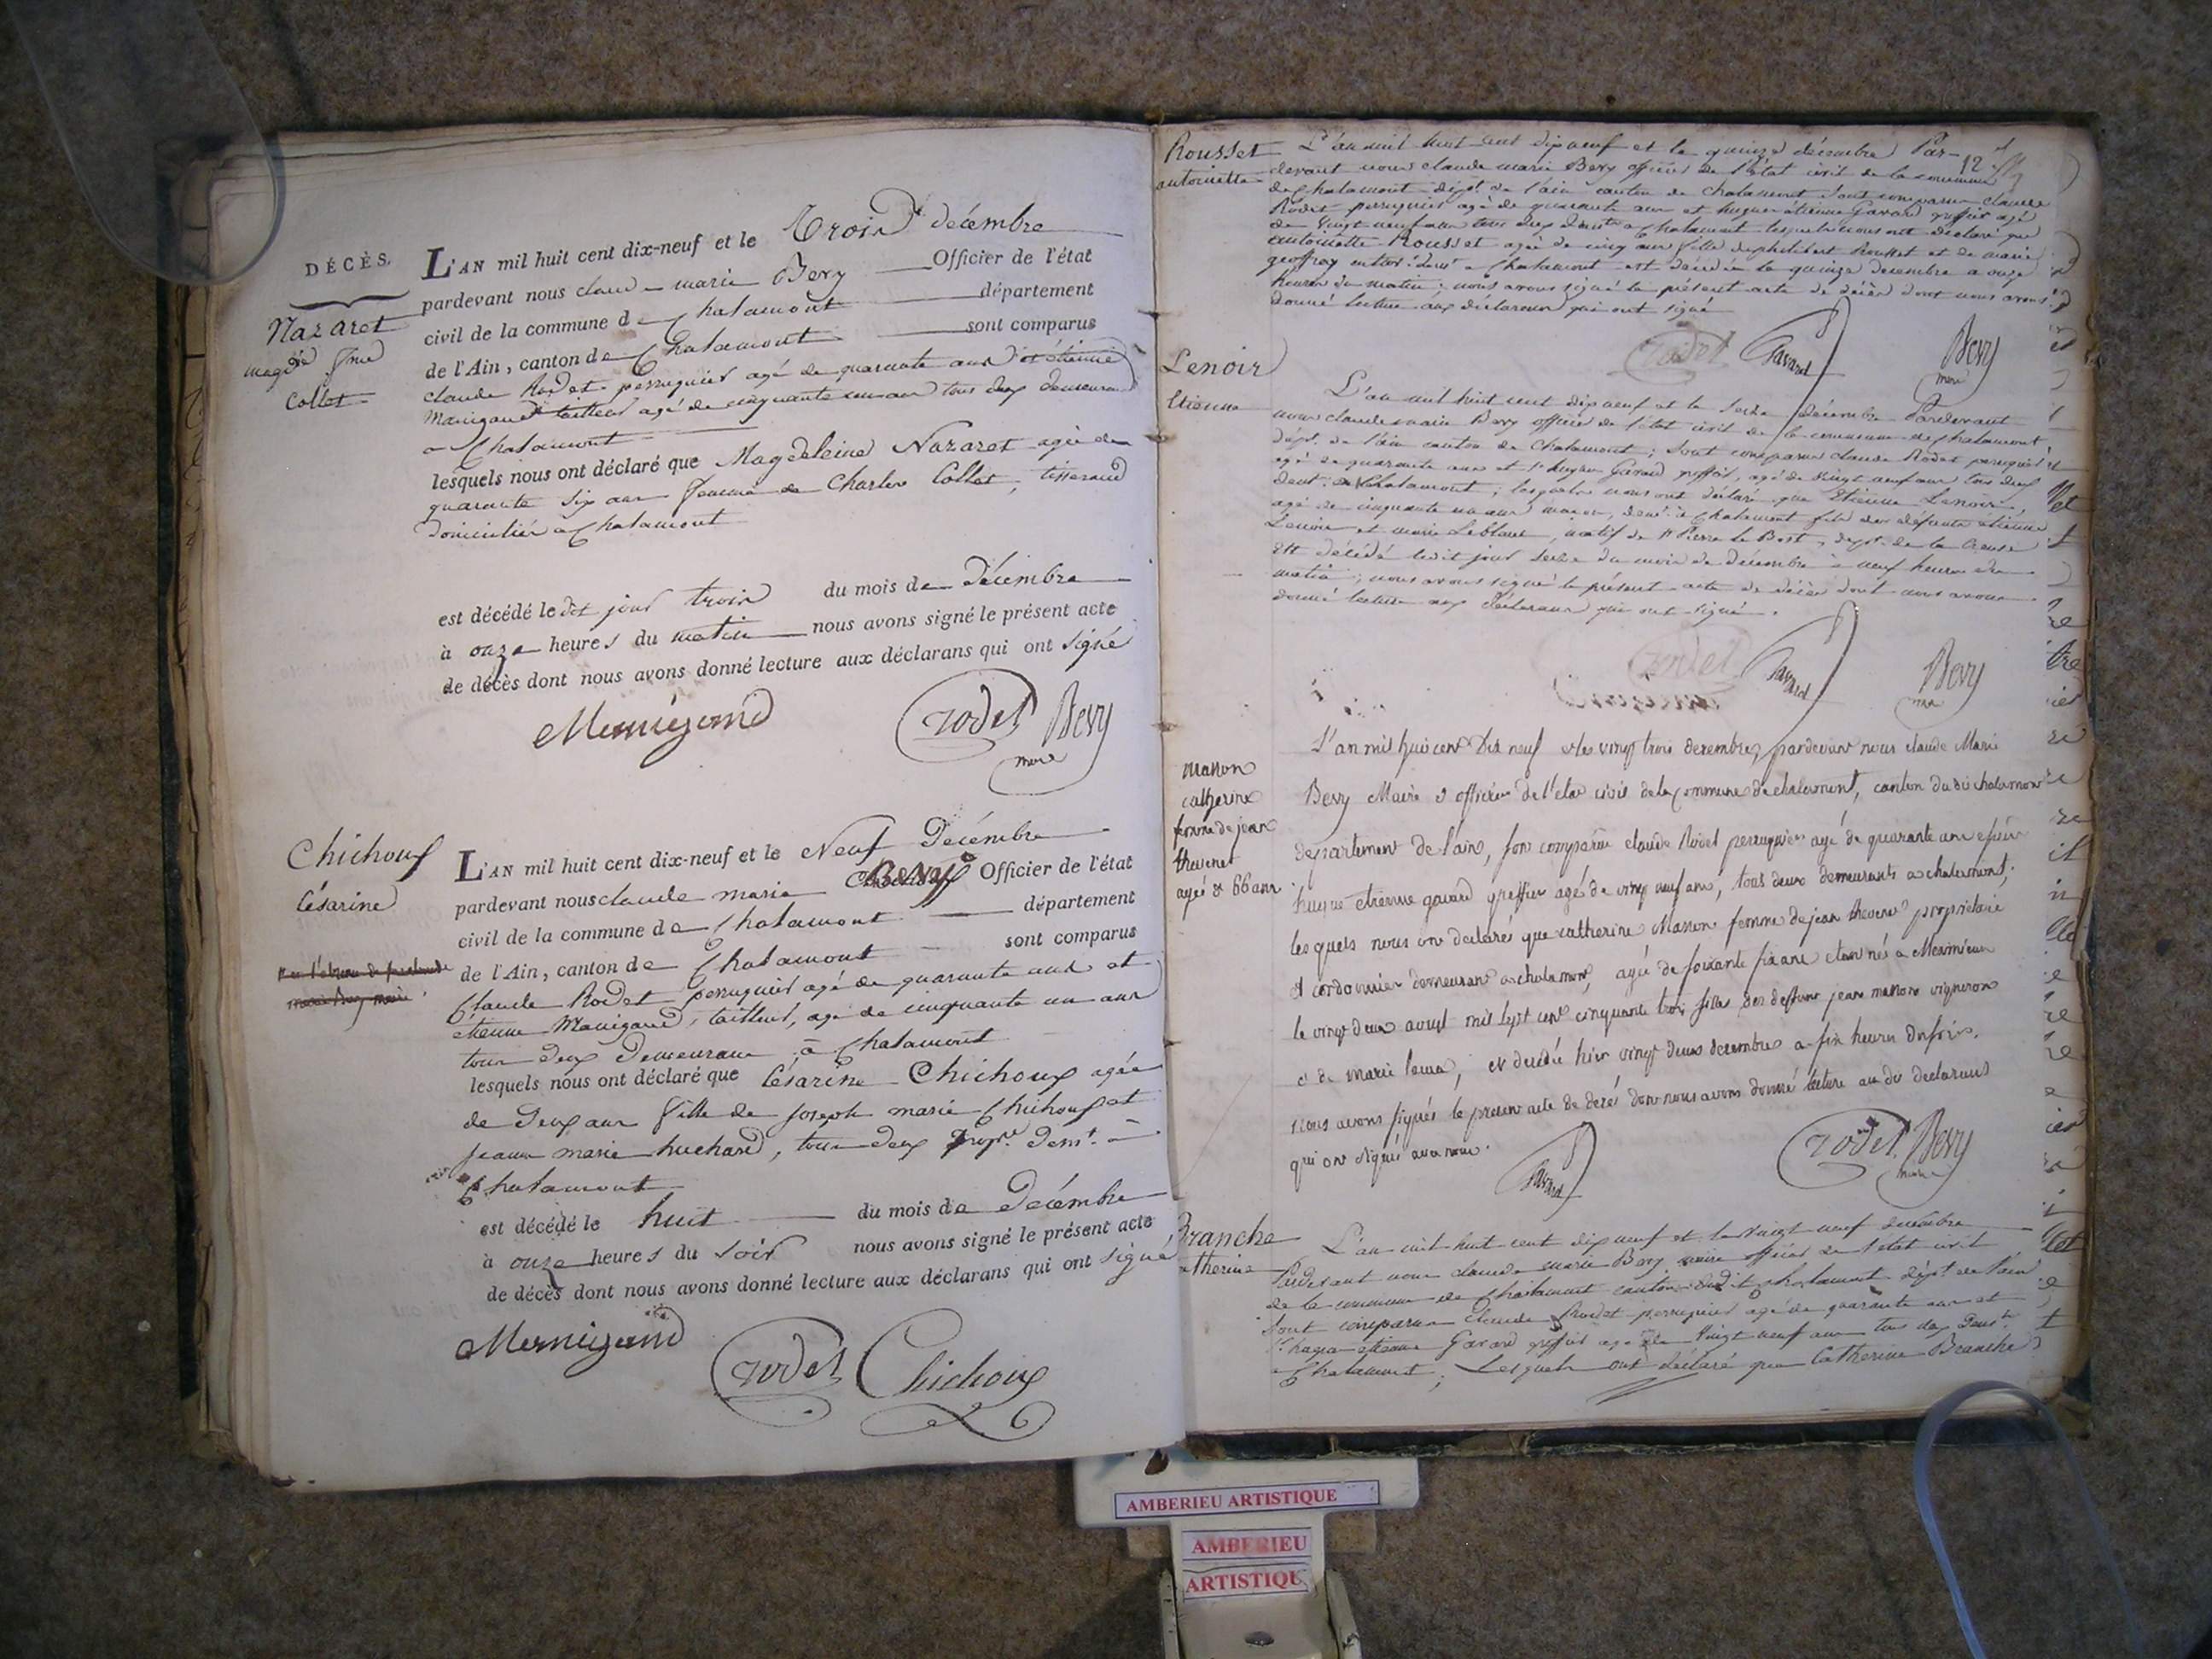 DÉCÈS.
Nazaret
magd.e fme
Collet
L'AN mil huit cent dix-neuf et le Trois décembre
pardevant nous claude marie Bevy Officier de l'état
civil de la commune de Chalamont département
de l'Ain, canton de Chalamont sont comparus
claude Rodet perruquier agé de quarante ans et étienne
Manigand tailleur agé de cinquante un ans tous deux demeurant
a Chalamont
lesquels nous ont déclaré que Magdeleine Nazaret agée de
quarante six ans femme de Charles Collet, tisserand
domiciliée a Chalamont
est décédé le dit jour trois du mois de Décembre
à onze heures du matin nous avons signé le présent acte
de décès dont nous avons donné lecture aux déclarans qui ont signé
Manigand Rodet Bevy
maire
Chichoux
Césarine
L'AN mil huit cent dix-neuf et le Neuf Décembre
pardevant nous claude marie Bevy Officier de l'état
civil de la commune de Chalamont département
de l'Ain, canton de Chalamont sont comparus
Claude Rodet perruquier agé de quarante ans et
étienne Manigand, tailleur, agé de cinquante un ans
tous deux Demeurans à Chalamont
lesquels nous ont déclaré que Césarine Chichoux agée
de Deux ans fille de joseph marie Chichoux et
jeanne marie huchard, tous deux propr. demt. à
Chalamont
est décédé le huit du mois de Décembre
à onze heures du soir nous avons signé le présent acte
de décès dont nous avons donné lecture aux déclarans qui ont signé
Manigand Rodet Chichoux
12
Rousset
antoinette
L'an mil huit cent dix neuf et le quinze décembre Par-
devant nous claude marie Bevy officier de l'état civil de la commune
de Chalamont dépt. de l'ain canton de Chalamont sont comparus claude
Rodet perruquier agé de quarante ans et hugue étienne Gavard greffier agé
de vingt neuf ans tous deux demts. a Chalamont lesquels nous ont déclaré que
antoinette Rousset agée de cinq ans fille de philibert Rousset et de marie
geoffray demt. a Chalamont est décédée le quinze decembre a onze
heures du matin; nous avons signé le présent acte de décès dont nous avons
donné lecture aux déclarans qui ont signé
Rodet Gavard Bevy
maire
Lenoir
Etienne
L'an mil huit cent dix neuf et le seize décembre Pardevant
nous claude marie Bevy officier de l'état civil de la commune de Chalamont,
dépt. de l'ain canton de Chalamont; sont comparus claude Rodet perruquier
agé de quarante ans et hugue Gavard greffier, agé de vingt neuf ans tous deux
demt. a Chalamont; lesquels nous ont déclaré que Etienne Lenoir,
agé de cinquante un ans maçon, demt. à Chalamont fils des défunts étienne
Lenoir et marie Leblanc, natif de St Pierre le Bost, dept. de la Creuse
est décédé ledit jour seize du mois de décembre à neuf heures du
matin; nous avons signé le présent acte de décès dont nous avons
donné lecture aux déclarans qui ont signé.
Rodet Gavard Bevy
maire
Masson
catherine
femme de jean
thevenet
agée de 66 ans
L'an mil huit cent Dix neuf et le vingt trois decembre, pardevant nous claude Marie
Bevy Maire et officier de l'etat civil de la Commune de chalamont, canton dudit chalamont
departement de l'ain, sont comparus claude Rodet perruquier agé de quarante ans et sieur
hugue etienne gavard greffier agé de vingt neuf ans, tous deux demeurants a chalamont,
les quels nous ont declarés que catherine Masson femme de jean thevenet proprietaire
et cordonnier demeurant a chalamont, agée de soixante six ans etant née a Meximieux
le vingt deux avril mil sept cent cinquante trois fille des deffunt jean masson vigneron
et de marie , est decedée hier vingt deux decembre a six heures du soir.
nous avons signés le present acte de decés dont nous avons donné lecture au dit declarans
qui ont signés avec nous.
Gavard Rodet Bevy
maire
Branche
atherine
L'an mil huit cent dix neuf et le vingt neuf décembre
Pardevant nous claude marie Bevy maire officier de l'état civil
de la commune de Chalamont canton dudit Chalamont dépt. de l'ain
sont comparus Claude Rodet perruquier agé de quarante ans et
hugue étienne Gavard greffier agé de vingt neuf ans tous deux demts.
a Chalamont; Lesquels ont déclaré que Catherine Branche
AMBERIEU ARTISTIQUE
AMBERIEU
ARTISTIQU